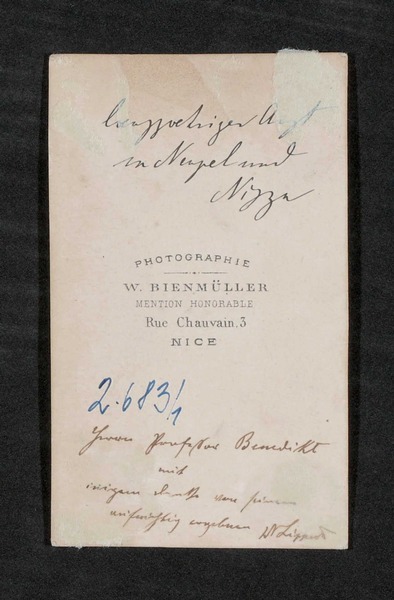 langjähriger Arzt
in Neapel und
Nizza
PHOTOGRAPHIE
W. BIENMÜLLER
MENTION HONORABLE
Rue Chauvain, 3
NICE
2.683/1
Herrn Professor Benedikt
mit
innigem Danke von seinem
aufrichtig ergebenen Dr Lippert